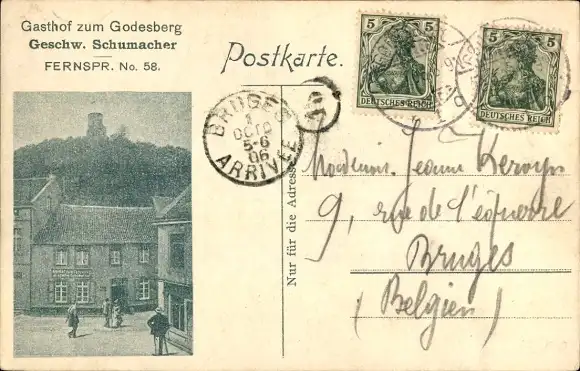 Gasthof zum Godesberg
Geschw. Schumacher
FERNSPR. No. 58.
Postkarte.
5 5
DEUTSCHES REICH
5 5
DEUTSCHES REICH
BRUGES
1
OCTO
5-6
06
ARRIVÉE
Nur für die Adresse
Jeanne Kervyn
9, rue de l'équerre
Bruges
(Belgien)